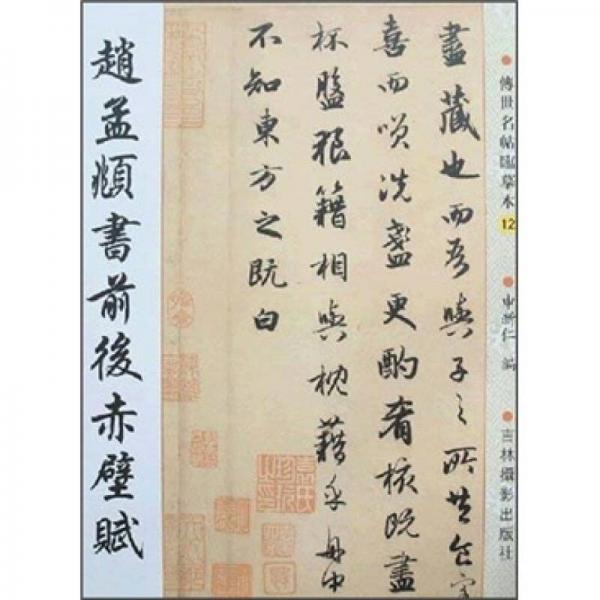 傳世名帖臨摹本 12
仁 編
吉林攝影出版社
盡藏也而吾與子之所共食客
喜而咲洗盞更酌肴核既盡
杯盤狼籍相與枕藉乎舟中
不知東方之既白
趙孟頫書前後赤壁賦